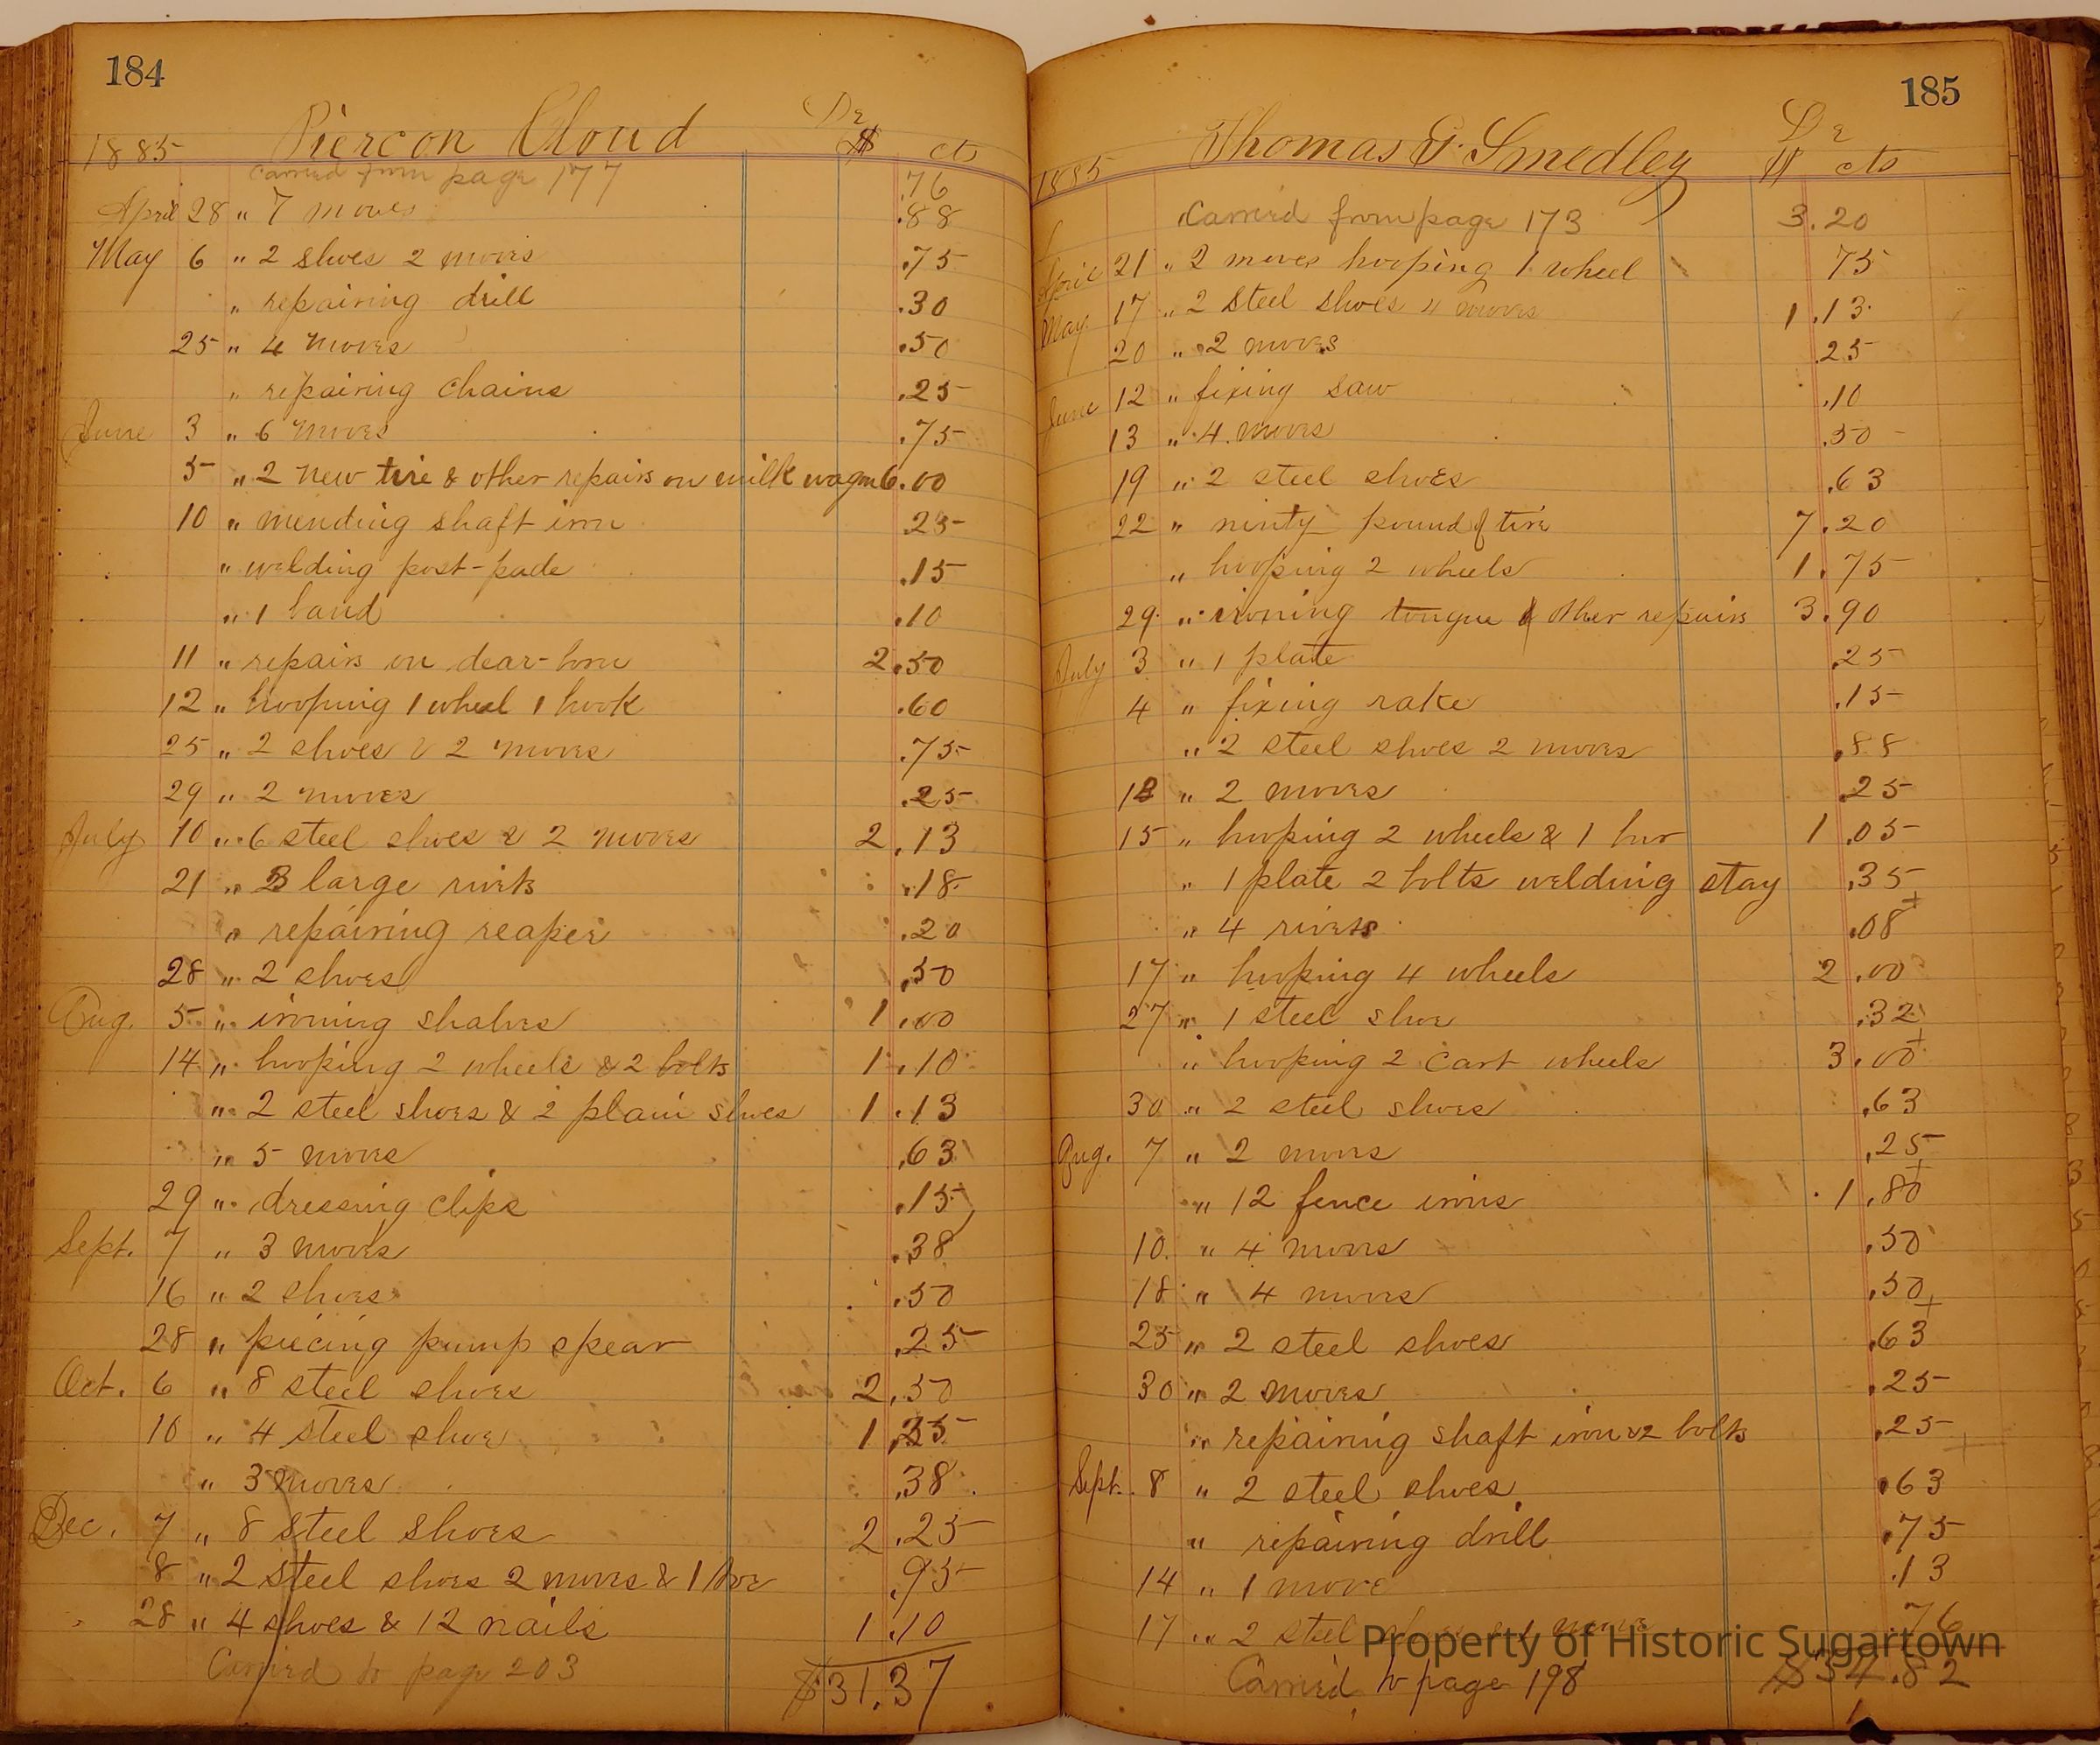 184
1885 Piercon Cloud Dr $ cts
Carried from page 177 .76
April 28 " 7 moves .88
May 6 " 2 shoes 2 moves .75
" repairing drill .30
25 " 4 moves .50
" repairing chains .25
June 3 " 6 moves .75
5 " 2 new tire & other repairs on milk wagon 6.00
10 " mending shaft iron .25
" welding post-pade .15
" 1 band .10
11 " repairs on dear-born 2.50
12 " hooping 1 wheel 1 hook .60
25 " 2 shoes & 2 moves .75
29 " 2 moves .25
July 10 " 6 steel shoes & 2 moves 2.13
21 " 3 large rivits .18
" repairing reaper .20
28 " 2 shoes .50
Aug. 5 " ironing shalves 1.00
14 " hooping 2 wheels & 2 bolts 1.10
" 2 steel shoes & 2 plain shoes 1.13
" 5 moves .63
29 " dressing clips .15
Sept. 7 " 3 moves .38
16 " 2 shoes .50
28 " piecing pump spear .25
Oct. 6 " 8 steel shoes 2.50
10 " 4 steel shoe 1.25
" 3 moves .38
Dec. 7 " 8 steel shoes 2.25
8 " 2 steel shoes 2 moves & 1 .95
28 " 4 shoes & 12 nails 1.10
Carried to page 203 $31.37
185
1885 Thomas G. Smedley Dr $ cts
Carried from page 173 3.20
April 21 " 2 moves hooping 1 wheel 75
May 17 " 2 steel shoes 4 moves 1.13
20 " 2 moves .25
June 12 " fixing saw .10
13 " 4 moves .50
19 " 2 steel shoes .63
22 " ninty pound of tire 7.20
" hooping 2 wheels 1.75
29 " ironing tongue & other repairs 3.90
July 3 " 1 plate .25
4 " fixing rake .15
" 2 steel shoes 2 moves .88
13 " 2 moves .25
15 " hooping 2 wheels & 1 bur 1.05
" 1 plate 2 bolts welding stay .35
" 4 rivets .08
17 " hooping 4 wheels 2.00
27 " 1 steel shoe .32
" hooping 2 cart wheels 3.00
30 " 2 steel shoes .63
Aug. 7 " 2 moves .25
" 12 fence irons 1.80
10 " 4 moves .50
18 " 4 moves .50
25 " 2 steel shoes .63
30 " 2 moves .25
" repairing shaft iron & 2 bolts .25
Sept. 8 " 2 steel shoes .63
" repairing drill .75
14 " 1 move .13
17 " 2 steel shoes & 1 move .76
Property of Historic Sugartown
Carried to page 198 $34.82